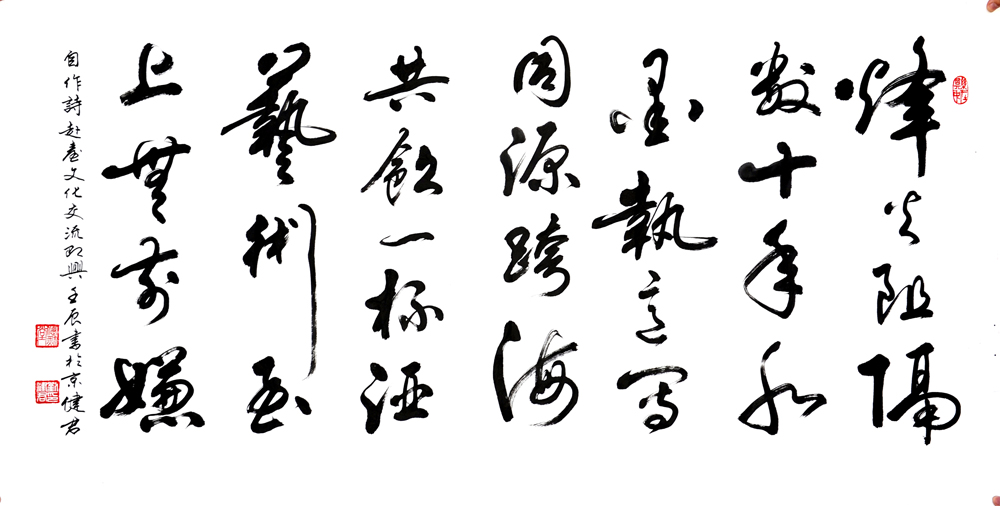 烽火阻隔
數十年水
墨執意寫
同源跨海
共飲一杯酒
藝術至
上無前嫌
自作詩赴臺文化交流即興壬辰書於京健君